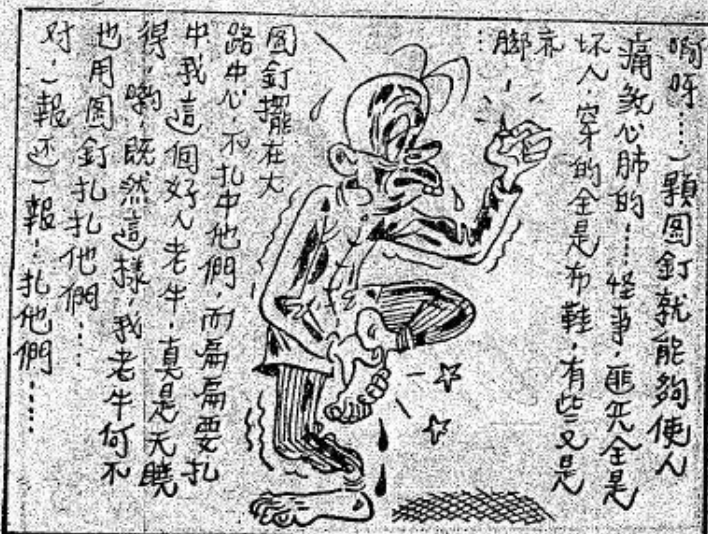 啊呀……一顆图釘就能夠使人
痛煞心肺的……怪事，匪兂全是
坏人，穿的全是布鞋，有些又是
赤脚…
图釘擺在大
路中心，不扎中他們，而扁扁要扎
中我這個好人老牛，真是天曉
得，喲，既然這樣，我老牛何不
也用图釘扎扎他們……
对，一報还一報，扎他們……